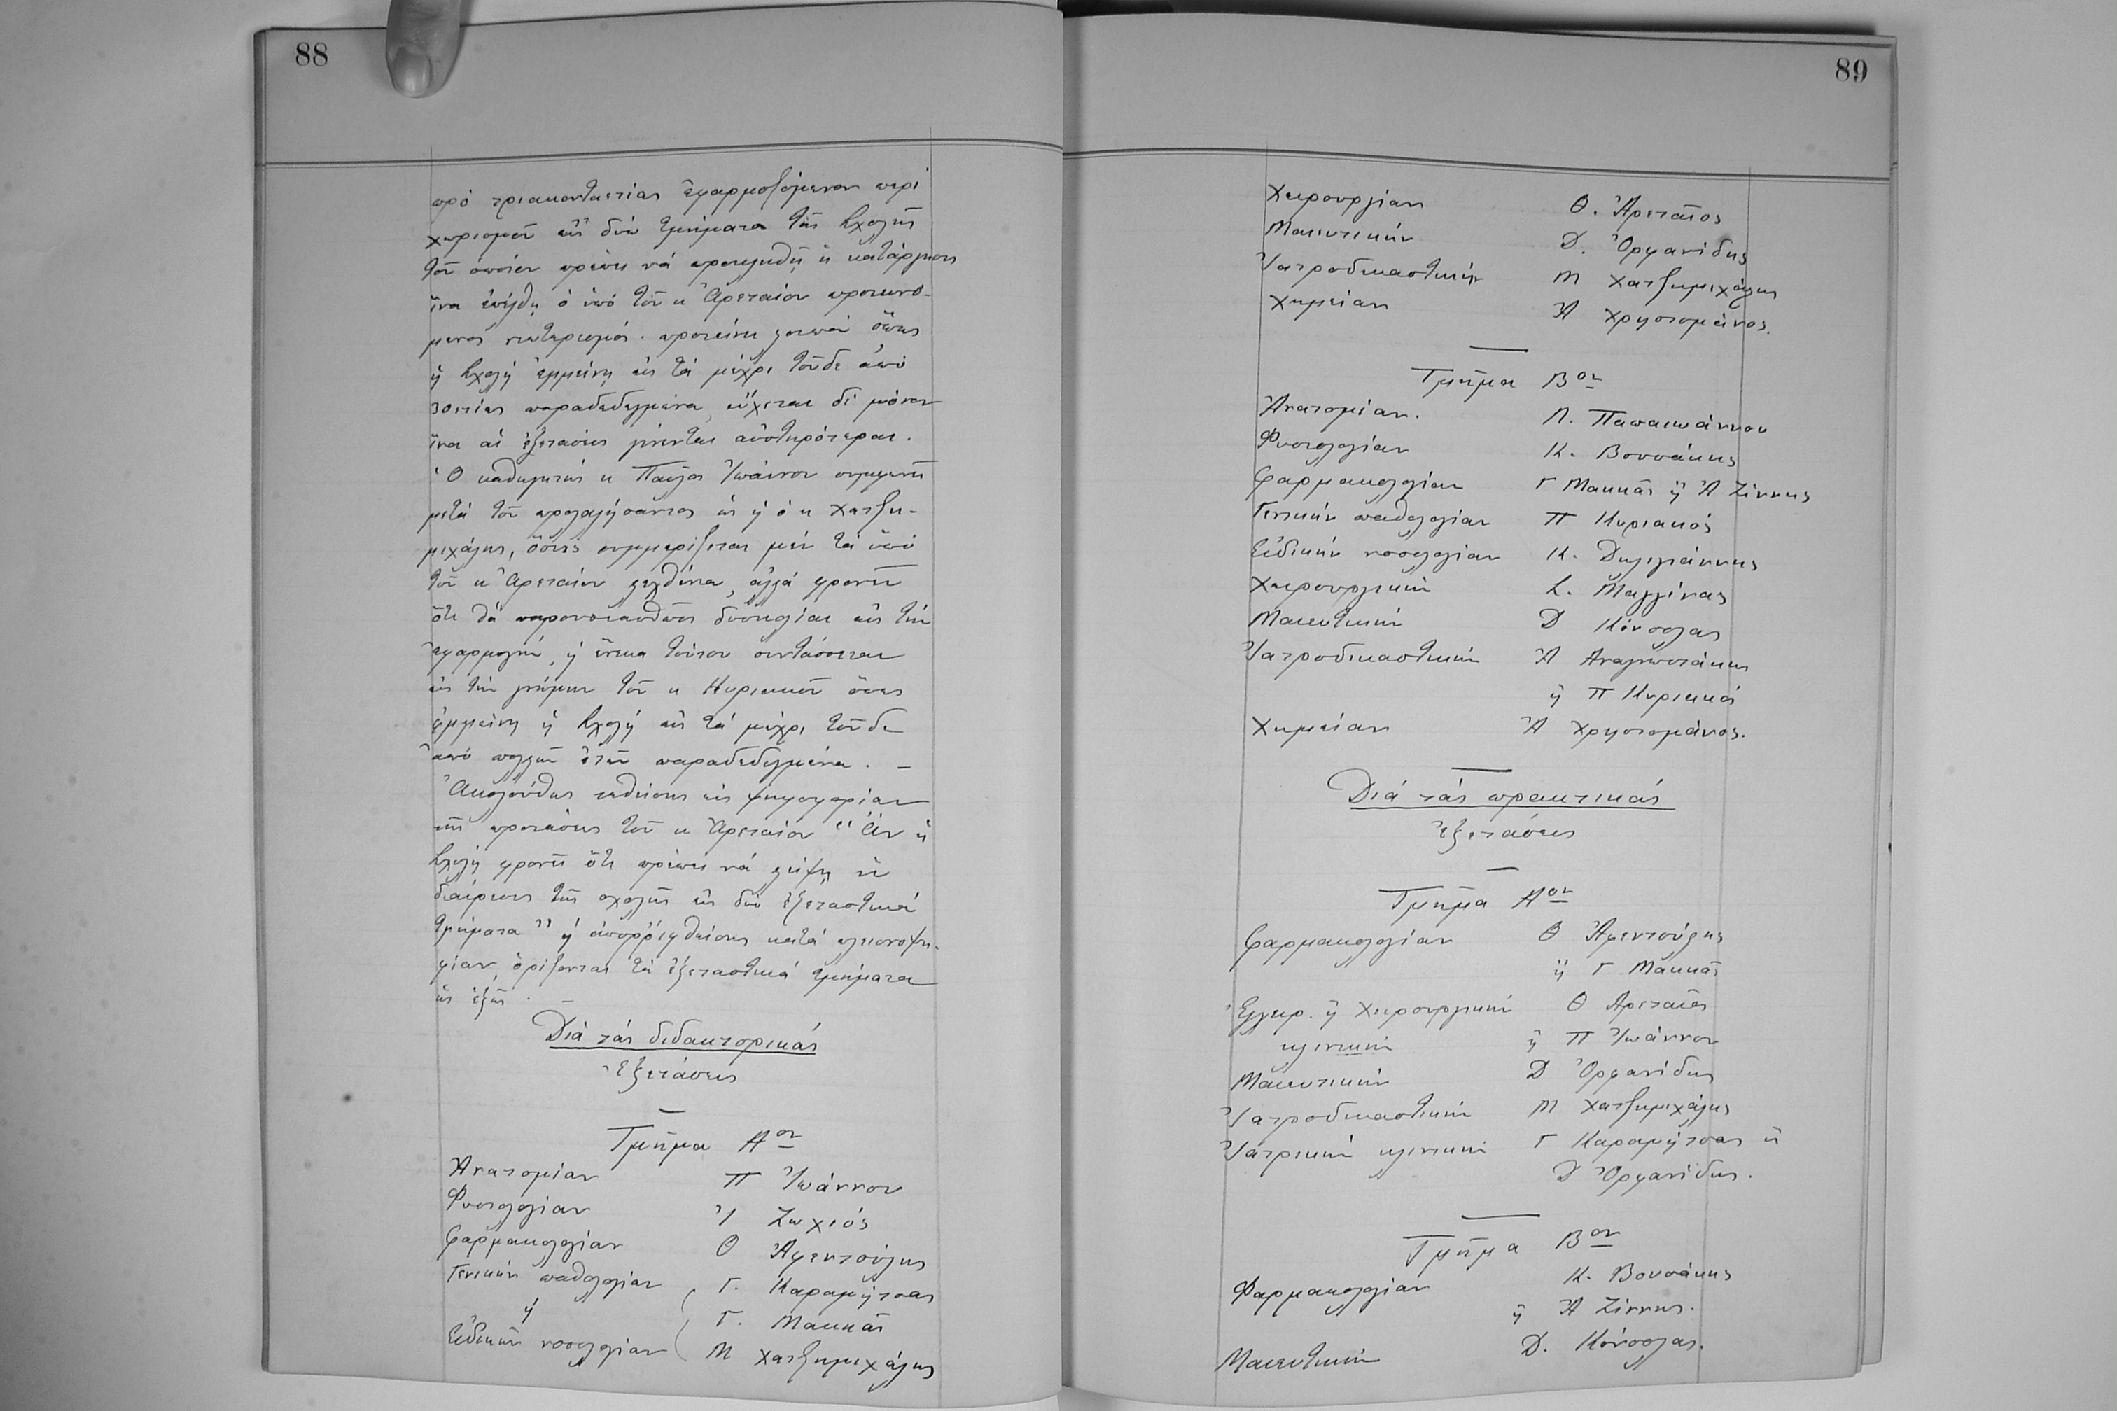 88
πρό τριακονταετίας ἐφαρμοζόμενον περί
χωρισμοῦ εἰς δύω τμήματα τῆς Σχολῆς
τοῦ ὁποίου πρέπει νά προηγηθῇ ἡ κατάργησις
ἵνα ἐπέλθῃ ὁ ὑπό τοῦ κ Ἀρεταίου προτεινό-
μενος νεωτερισμός. προτείνει λοιπόν ὅπως
ἡ Σχολή ἐμμείνῃ εἰς τά μέχρι τοῦδε ἀπό
30ετίας παραδεδεγμένα, εὔχεται δέ μόνον
ἵνα αἱ ἐξετάσεις γίνωνται αὐστηρότεραι.
Ὁ καθηγητής κ Παῦλος Ἰωάννου συμφωνεῖ
μετά τοῦ προλαλήσαντος ὡς ϗ ὁ κ Χατζη-
μιχάλης, ὅστις συμμερίζεται μέν τά ὑπό
τοῦ κ Ἀρεταίου λεχθέντα, ἀλλά φρονεῖ
ὅτι θά παρουσιασθῶσι δυσκολίαι εἰς τήν
ἐφαρμογήν, ϗ ἕνεκα τούτου συντάσσεται
εἰς τήν γνώμην τοῦ κ Κυριακοῦ ὅπως
ἐμμείνῃ ἡ Σχολή εἰς τά μέχρι τοῦδε
ἀπό πολλῶν ἐτῶν παραδεδεγμένα. –
Ἀκολούθως τεθείσης εἰς ψηφοφορίαν
τῆς προτάσεως τοῦ κ Ἀρεταίου " Ἄν ἡ
Σχολή φρονεῖ ὅτι πρέπει νά λείψῃ ἡ
διαίρεσις τῆς σχολῆς εἰς δύο ἐξεταστικά
τμήματα " ϗ ἀπορριφθείσης κατά πλειονοψη-
φίαν, ὁρίζονται τά ἐξεταστικά τμήματα
ὡς ἑξῆς. –
Διά τάς διδακτορικάς
Ἐξετάσεις
Τμῆμα Αον
Ἀνατομίαν Π Ἰωάννου
Φυσιολογίαν Ἰ Ζωχιός
Φαρμακολογίαν Θ Ἀφεντούλης
Γενικήν παθολογίαν Γ. Καραμήτσας
ϗ Γ. Μακκᾶς
Εἰδικήν νοσολογίαν Μ Χατζημιχάλης
89
Χειρουργίαν Θ. Ἀρεταῖος
Μαιευτικήν Δ. Ὀρφανίδης
Ἰατροδικαστικήν Μ Χατζημιχάλης
Χημείαν Ἀ Χρηστομάνος.
Τμῆμα Βον
Ἀνατομίαν. Λ. Παπαιωάννου
Φυσιολογίαν Κ. Βουσάκης
Φαρμακολογίαν Γ Μακκᾶς ἤ Ἀ Ζίννης
Γενικήν παθολογίαν Π Κυριακός
Εἰδικήν νοσολογίαν Κ. Δηλιγιάννης
Χειρουργικήν Σ. Μαγγίνας
Μαιευτικήν Δ Κόνσολας
Ἰατροδικαστικήν Ἀ Αναγνωστάκης
ἤ Π Κυριακός
Χημείαν Ἀ Χρηστομάνος.
Διά τάς πρακτικάς
Ἐξετάσεις
Τμῆμα Αον
Φαρμακολογίαν Θ Ἀφεντούλης
ἤ Γ Μακκᾶς
Εγχειρ. ἤ Χειρουργικήν Θ Αρεταῖος
κλινικήν ἤ Π Ἰωάννου
Μαιευτικήν Δ Ὀρφανίδης
Ἰατροδικαστικήν Μ Χατζημιχάλης
Ἰατρικήν κλινικήν Γ Καραμήτσας ἤ
Δ Ὀρφανίδης.
Τμῆμα Βον
Φαρμακολογίαν Κ. Βουσάκης
ἤ Ἀ Ζίννης.
Μαιευτικήν Δ. Κόνσολας.